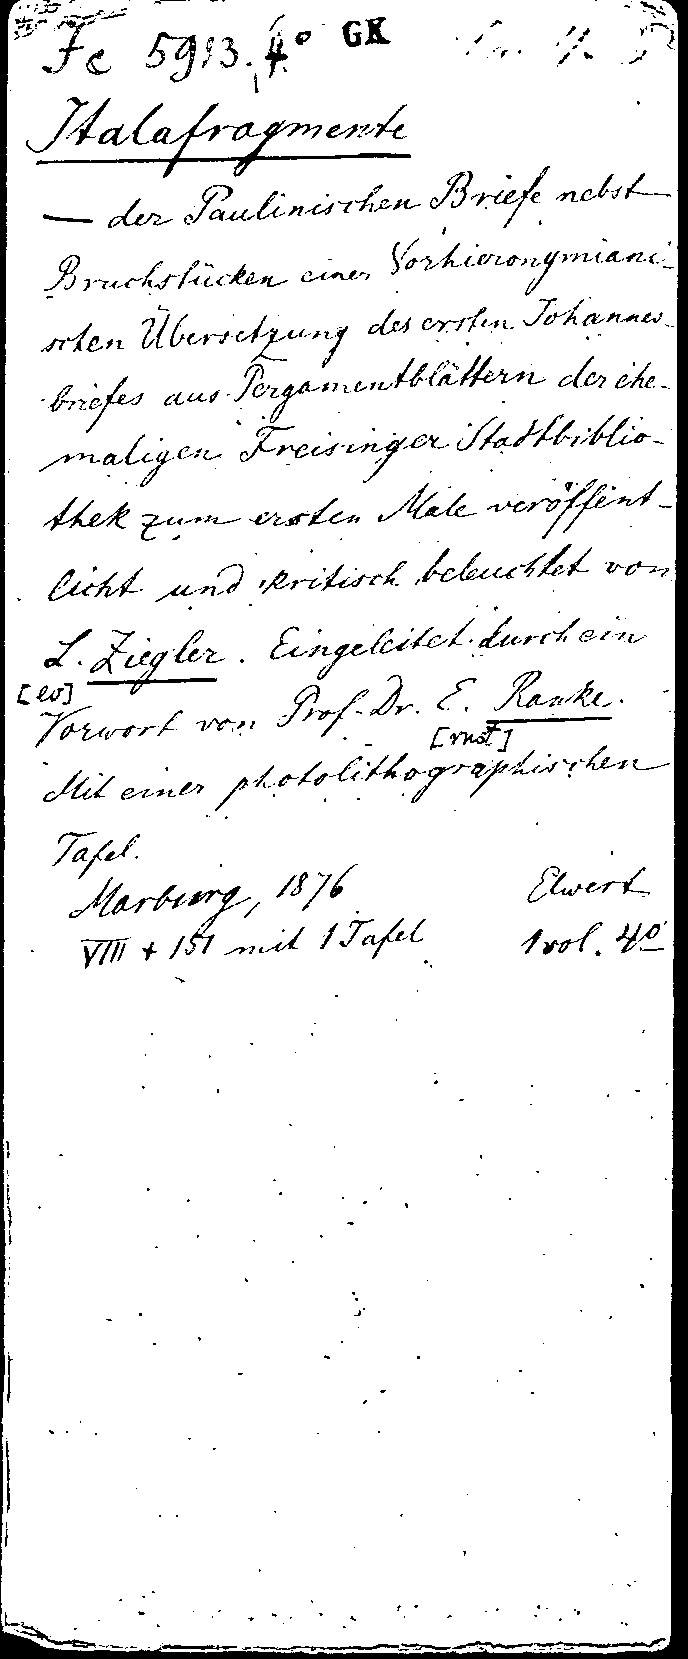 Fc 5913. 4° GK
Italafragmente
— der Paulinischen Briefe nebst
Bruchstücken einer Vorhieronymiani-
schen Übersetzung des ersten Johannes-
briefes aus Pergamentblättern der ehe-
maligen Freisinger Stadtbiblio-
thek zum ersten Male veröffent-
licht und kritisch beleuchtet von
L. Ziegler. Eingeleitet durch ein
[eo]
Vorwort von Prof. Dr. E. Ranke.
[rnst]
Mit einer photolithographischen
Tafel.
Marburg, 1876 Elwert
VIII + 151 mit 1 Tafel 1 vol. 4°